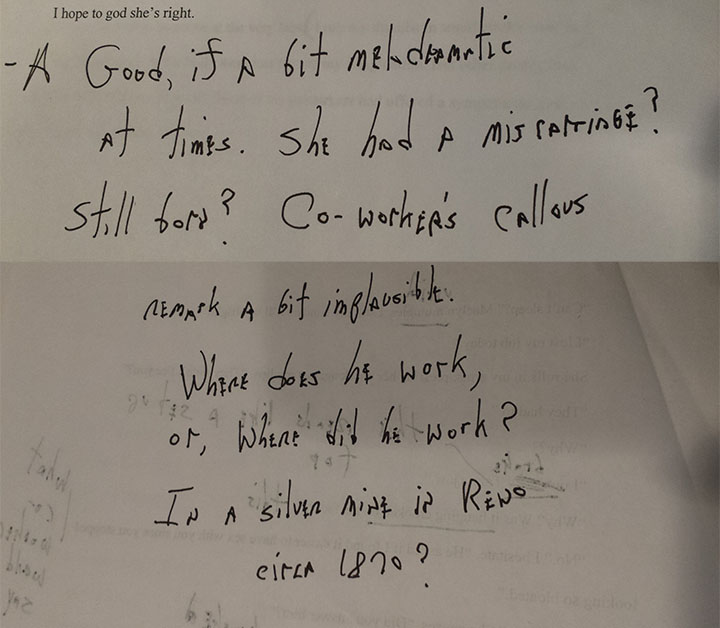 I hope to god she's right.
- A Good, if A bit melodramatic
At times. She had A miscarriage?
Still born? Co-worker's callous
remark A bit implausible.
Where does he work,
or, where did he work?
In A silver mine in Reno
circa 1870?